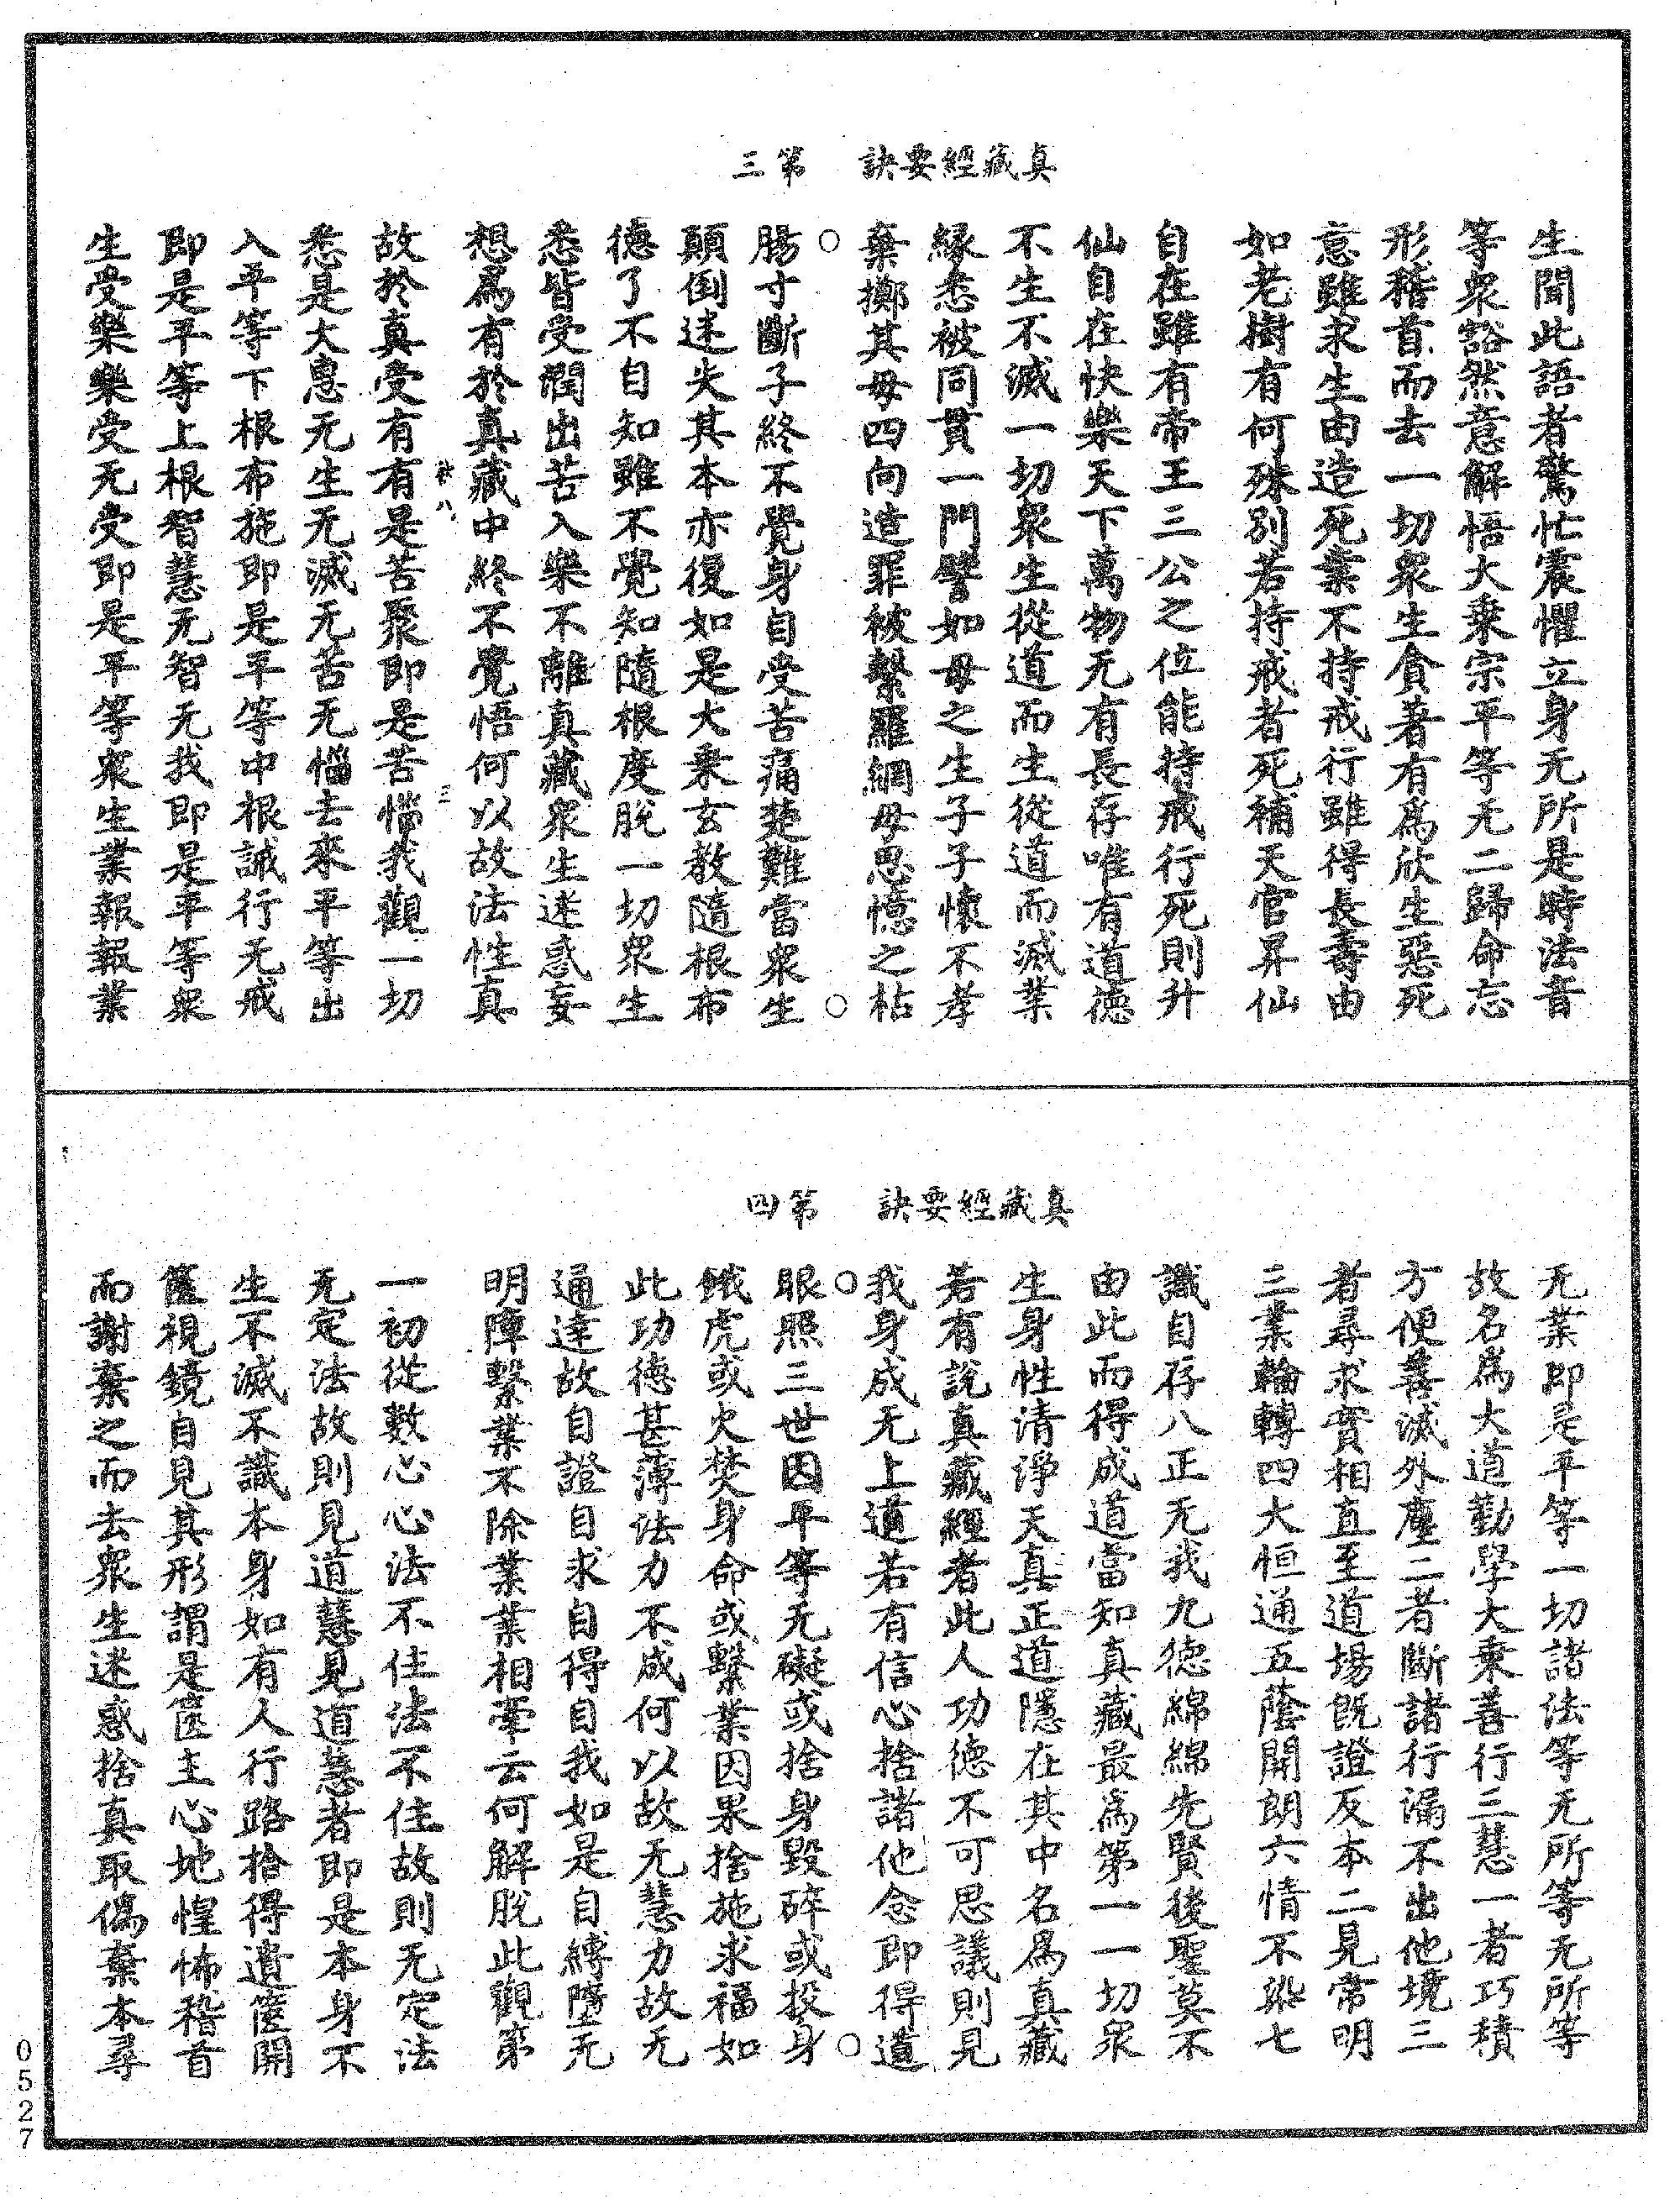 真藏經要訣　第三
生聞此語者驚忙震懼立身无所是時法音
等衆豁然意解悟大乗宗平等无二歸命忘
形稽首而去一切衆生貪著有爲欣生惡死
意雖求生由造死業不持戒行雖得長壽由
如老樹有何殊別若持戒者死補天官昇仙
自在雖有帝王三公之位能持戒行死則升
仙自在快樂天下萬物无有長存唯有道德
不生不滅一切衆生從道而生從道而滅業
緣悉被同貫一門譬如母之生子子懷不孝
棄擲其母四向造罪被繫羅網母思憶之枯
腸寸斷子終不覺身自受苦痛楚難當衆生
顛倒迷失其本亦復如是大乗玄教隨根布
德了不自知雖不覺知隨根度脫一切衆生
悉皆受潤出苦入樂不離真藏衆生迷惑妄
想爲有於真藏中終不覺悟何以故法性真
故於真受有有是苦聚即是苦惱我觀一切
悉是大患无生无滅无苦无惱去來平等出
入平等下根布施即是平等中根誡行无戒
即是平等上根智慧无智无我即是平等衆
生受樂樂受无受即是平等衆生業報報業
真藏經要訣　第四
无業即是平等一切諸法等无所等无所等
故名爲大道勤學大乗善行三慧一者巧積
方便善滅外塵二者斷諸行漏不出他境三
者尋求實相直至道場既證反本二見常明
三業輪轉四大恒通五蔭開朗六情不染七
識自存八正无我九德綿綿先賢後聖莫不
由此而得成道當知真藏最爲第一一切衆
生身性清淨天真正道隱在其中名爲真藏
若有說真藏經者此人功德不可思議則見
我身成无上道若有信心捨諸他念即得道
眼照三世因平等无礙或捨身毀碎或投身
餓虎或火焚身命或繫業因果捨施求福如
此功德甚薄法力不成何以故无慧力故无
通達故自證自求自得自我如是自縛墮无
明障繫業不除業業相牽云何解脫此觀第
一初從數心心法不住法不住故則无定法
无定法故則見道慧見道慧者即是本身不
生不滅不識本身如有人行路拾得遺篋開
篋視鏡自見其形謂是篋主心地惶怖稽首
而謝棄之而去衆生迷惑捨真取僞棄本尋
0527